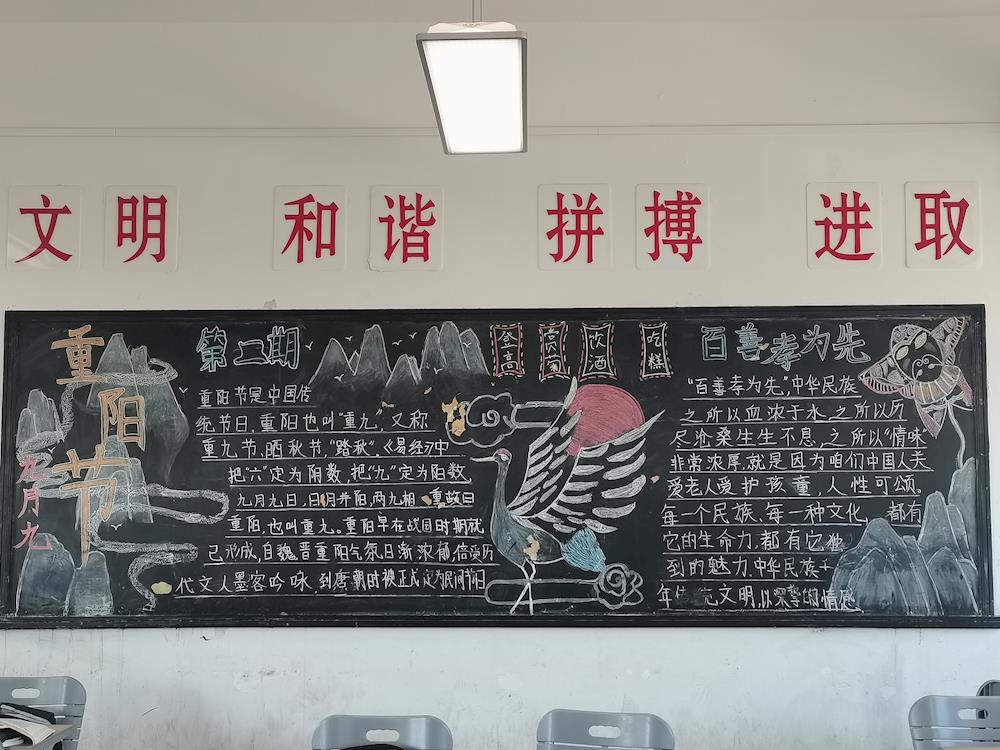 文明 和谐 拼搏 进取
重阳节
九月九
第二期
重阳节是中国传
统节日，重阳也叫“重九”，又称
重九节，晒秋节“踏秋”.《易经》中
把“六”定为阴数，把“九”定为阳数
九月九日，日月并阳，两九相重故曰
重阳，也叫重九。重阳早在战国时期就
已形成，自魏晋重阳气氛日渐浓郁，倍受历
代文人墨客吟咏.到唐朝时被正式定为民间节日
登高
赏菊
饮酒
吃糕
百善孝为先
“百善孝为先”，中华民族
之所以血浓于水，之所以历
尽沧桑生生不息，之所以“情味
非常浓厚，就是因为咱们中国人夫
爱老人爱护孩童，人性可颂。
每一个民族、每一种文化，都有
它的生命力.都有它独
到的魅力.中华民族
年 文明，以深挚的情感